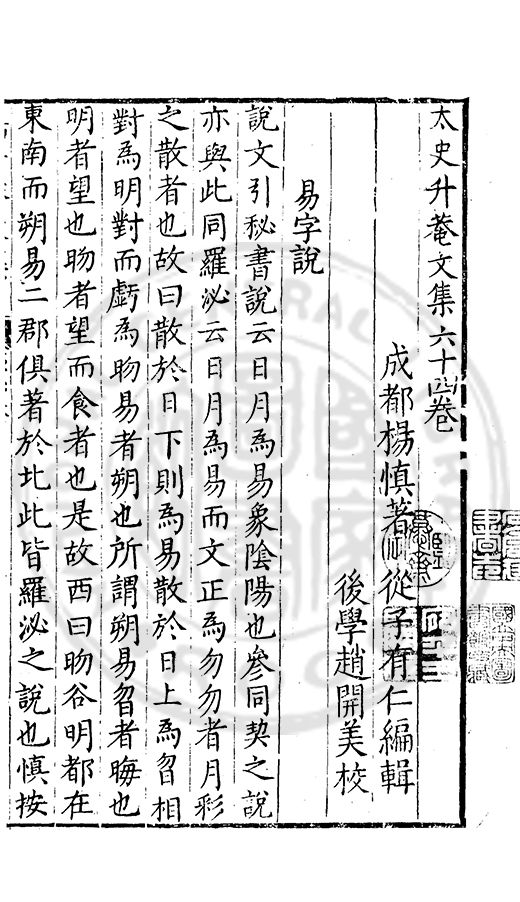 太史升菴文集六十四卷
成都楊慎著 從子有仁編輯
後學趙開美校
易字說
說文引秘書說云日月為易象陰陽也參同契之說
亦與此同羅泌云日月為易而文正為勿勿者月彩
之散者也故曰散於日下則為易散於日上為曶相
對為明對而虧為昒易者朔也所謂朔易曶者晦也
明者望也昒者望而食者也是故西曰昒谷明都在
東南而朔易二郡俱著於北此皆羅泌之說也慎按